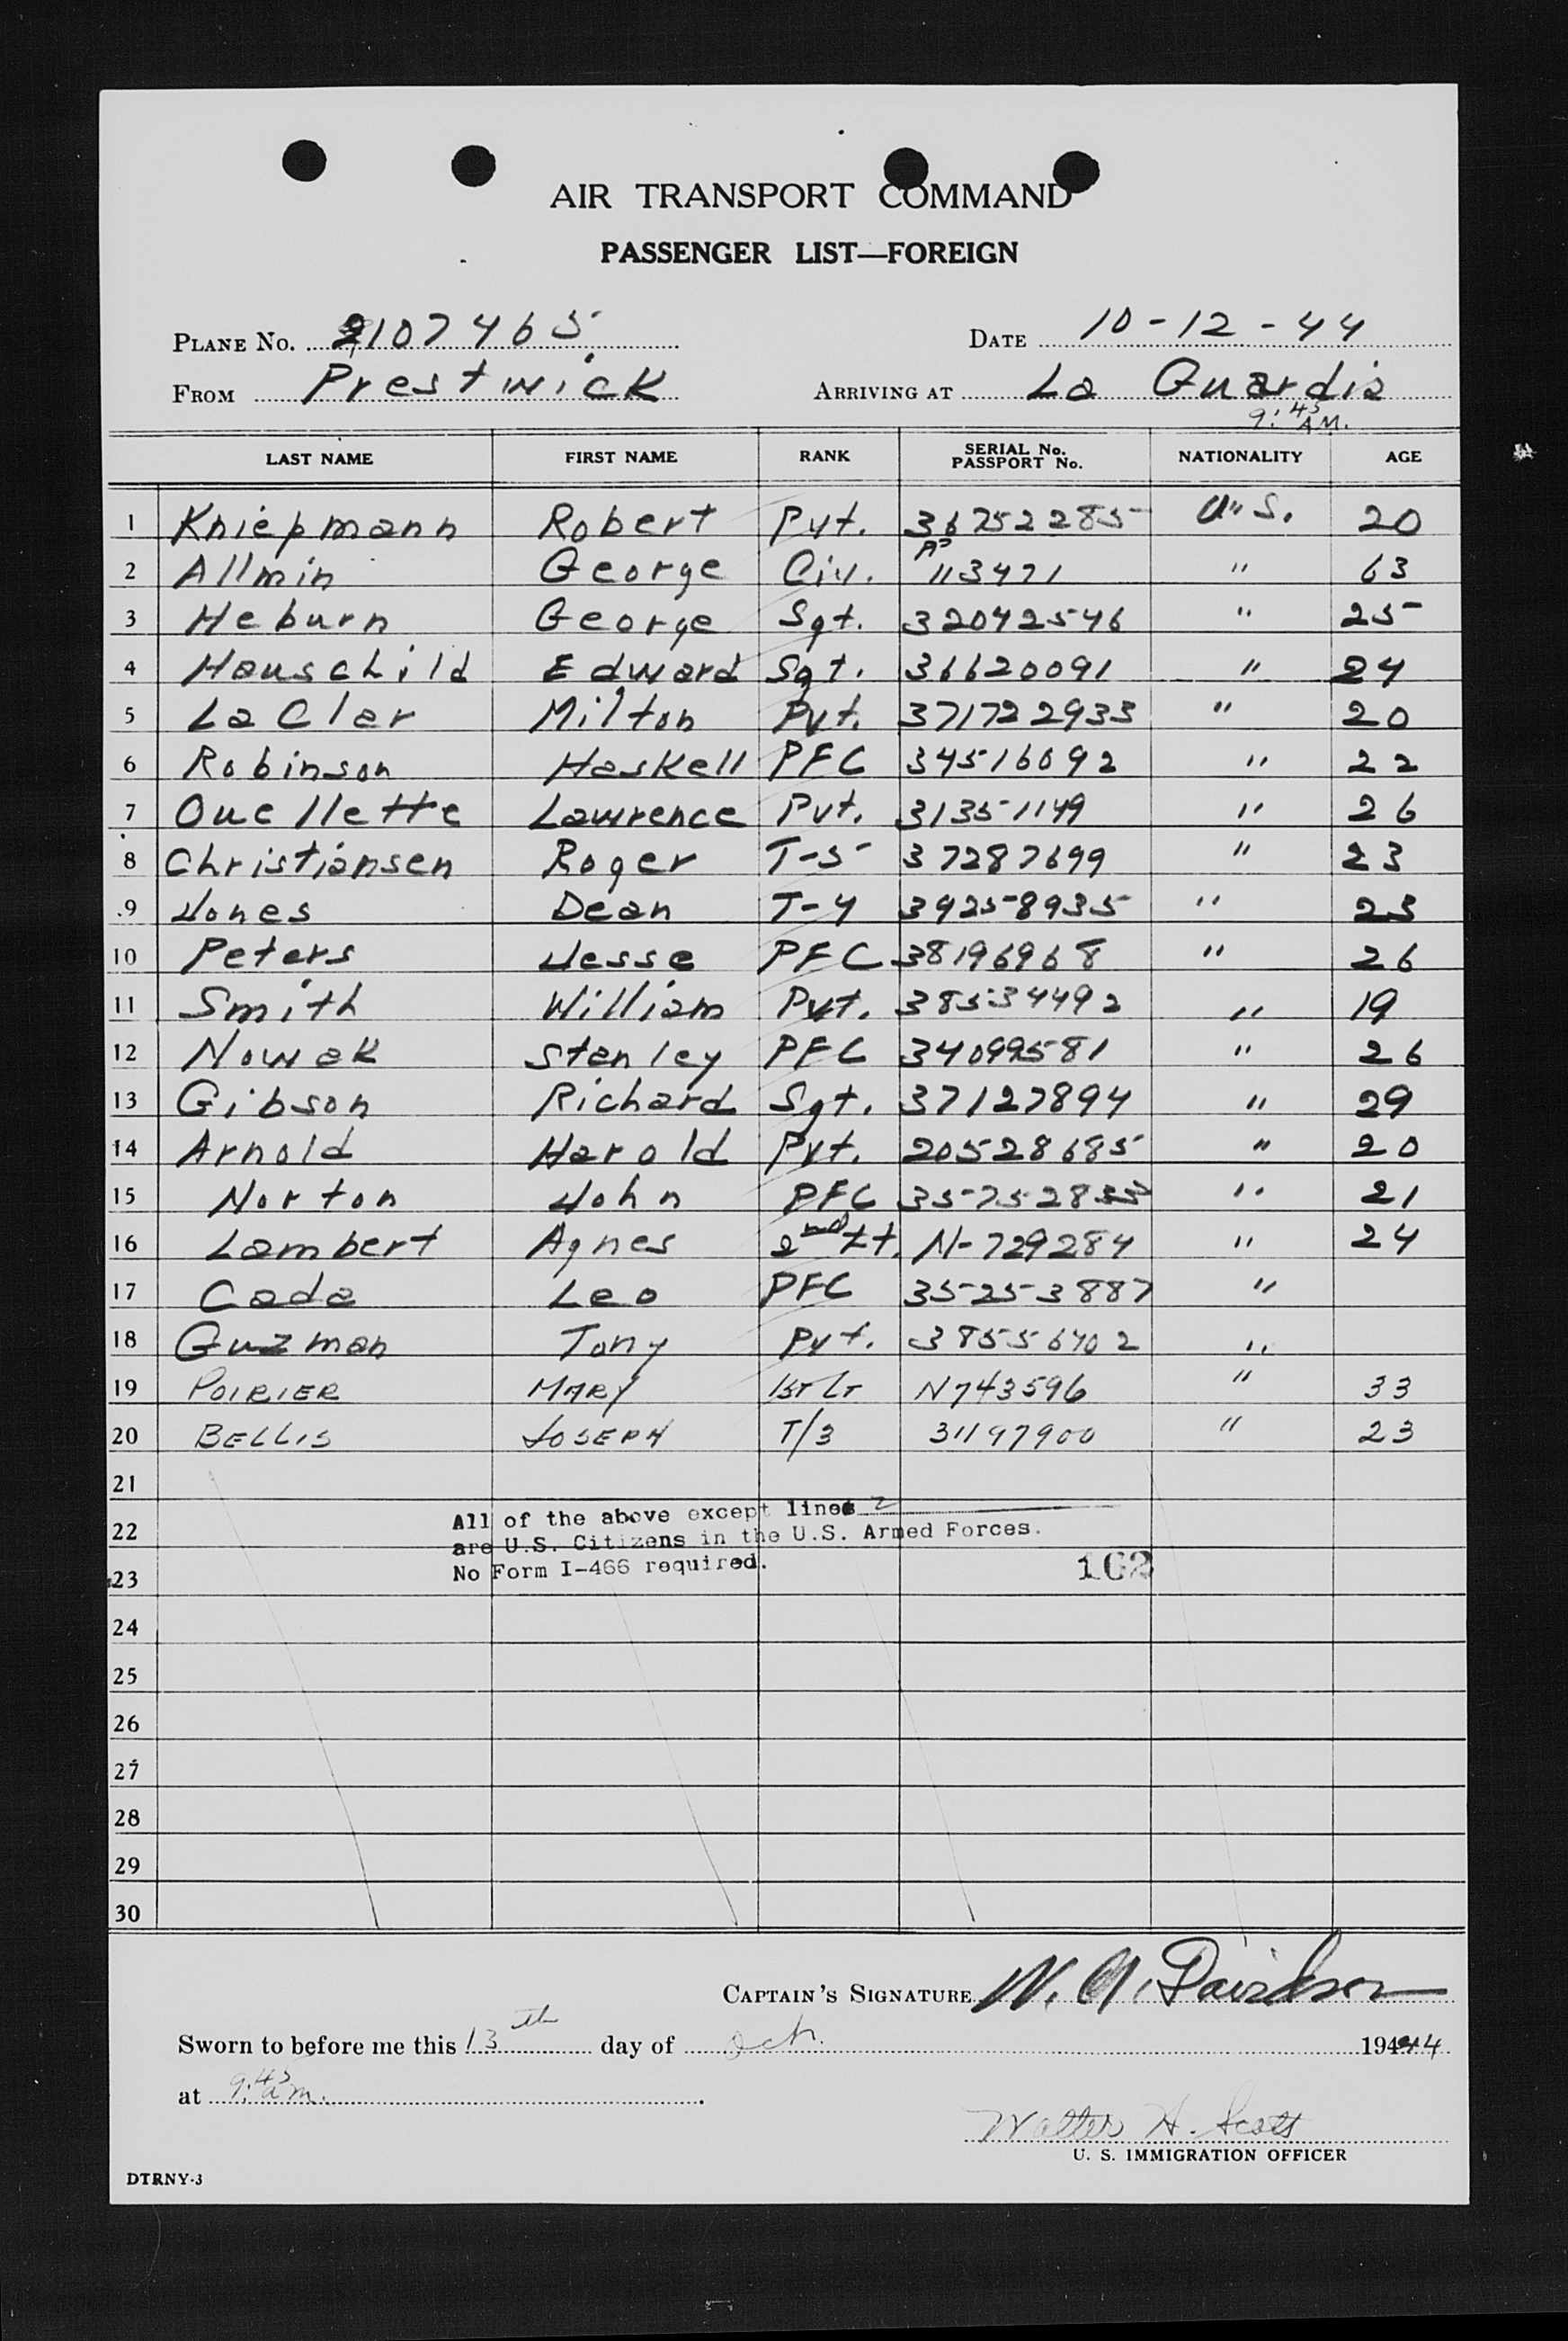 AIR TRANSPORT COMMAND
PASSENGER LIST—FOREIGN
PLANE No. 2107465 DATE 10-12-44
FROM Prestwick ARRIVING AT La Guardia
9:45 AM.
LAST NAME FIRST NAME RANK SERIAL No. PASSPORT No. NATIONALITY AGE
1 Kniepmann Robert Pvt. 36752285 U.S. 20
2 Allmin George Civ. 113471 " 63
3 Heburn George Sgt. 32042546 " 25
4 Hauschild Edward Sgt. 36620091 " 24
5 LaClar Milton Pvt. 371722933 " 20
6 Robinson Haskell PFC 34516092 " 22
7 Ouellette Lawrence Pvt. 31351149 " 26
8 Christiansen Roger T-5 37287699 " 23
9 Jones Dean T-4 39258935 " 23
10 Peters Jesse PFC 38196968 " 26
11 Smith William Pvt. 38534492 " 19
12 Nowak Stanley PFC 34099581 " 26
13 Gibson Richard Sgt. 37127894 " 29
14 Arnold Harold Pvt. 20528685 " 20
15 Norton John PFC 35752833 " 21
16 Lambert Agnes 2nd Lt. N-729284 " 24
17 Cada Leo PFC 35253887 "
18 Guzman Tony Pvt. 38556702 "
19 POIRIER MARY 1ST LT N743596 " 33
20 BELLIS JOSEPH T/3 31197900 " 23
21
22 All of the above except lines 2
are U.S. Citizens in the U.S. Armed Forces.
23 No Form I-466 required. 162
24
25
26
27
28
29
30
CAPTAIN'S SIGNATURE W. A. Davidson
Sworn to before me this 13th day of Oct. 1944
at 9:45 am.
Walter H. Scott
U. S. IMMIGRATION OFFICER
DTRNY-3